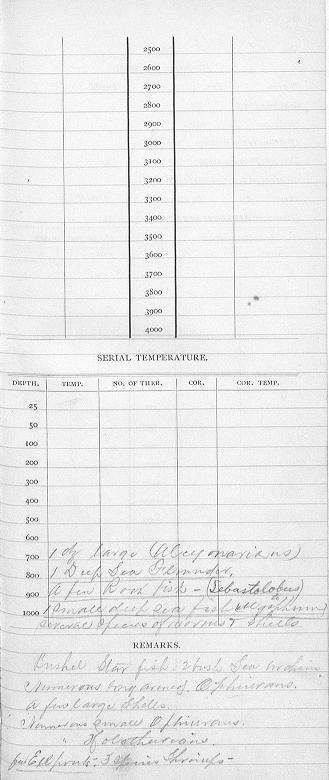 2500
2600
2700
2800
2900
3000
3100
3200
3300
3400
3500
3600
3700
3800
3900
4000
SERIAL TEMPERATURE.
DEPTH. TEMP. NO. OF THER. COR. COR. TEMP.
25
50
100
200
300
400
500
600
700 1 dz large (Alcyonarians)
800 1 Deep Sea Flounder,
900 A few Rock fish - (Sebastolobus)
1000 1 small deep sea fish
several species of worms & shells
REMARKS.
Bushel Star fish. 2 bush Sea Urchins
Numerous long armed Ophiurans.
A few large Shells.
Numerous small Ophiurans.
" Holothurians
Eel pouts - 3 species Shrimps -